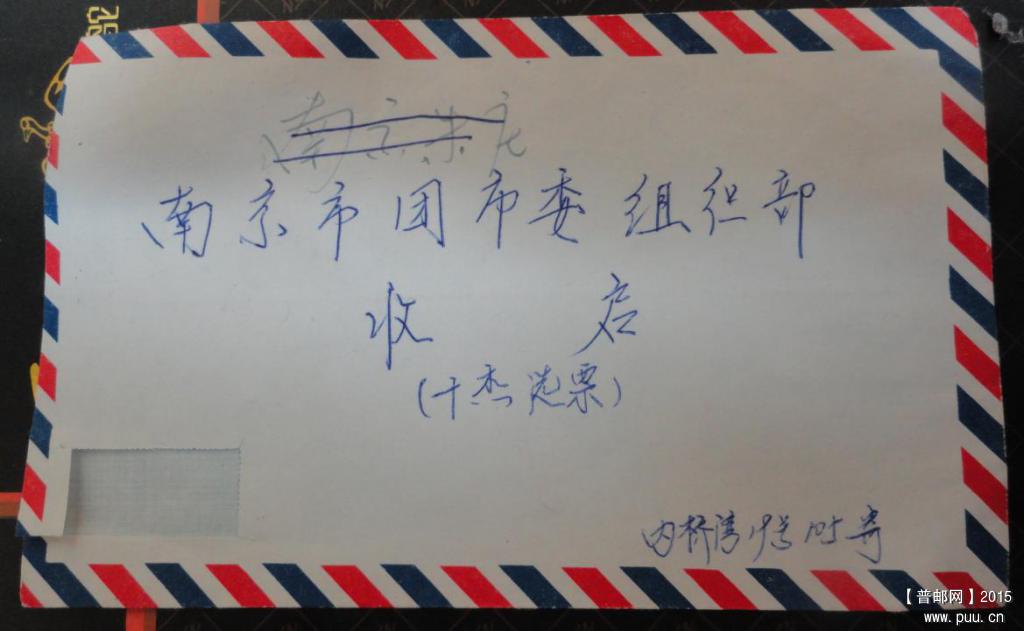 南京
南京市团市委组织部
收 启
(十杰选票)
内桥湾 寄
【普邮网】2015
www.puu.cn